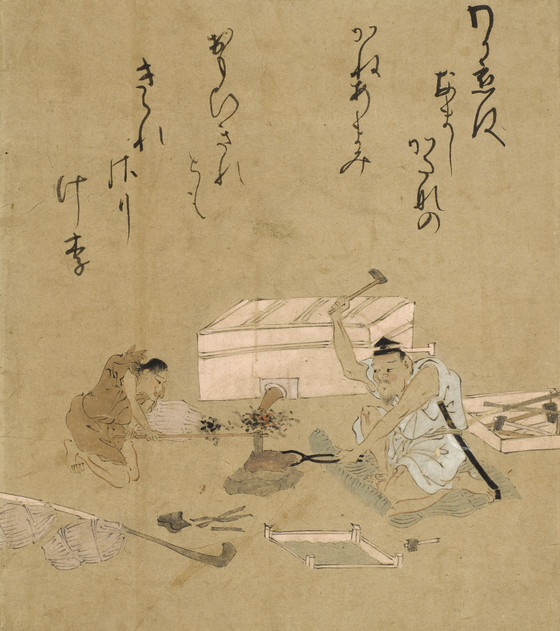 わか恋は
なまし
かたなの
かねあまみ
おもひきれ
とも
きられ
さり
けり